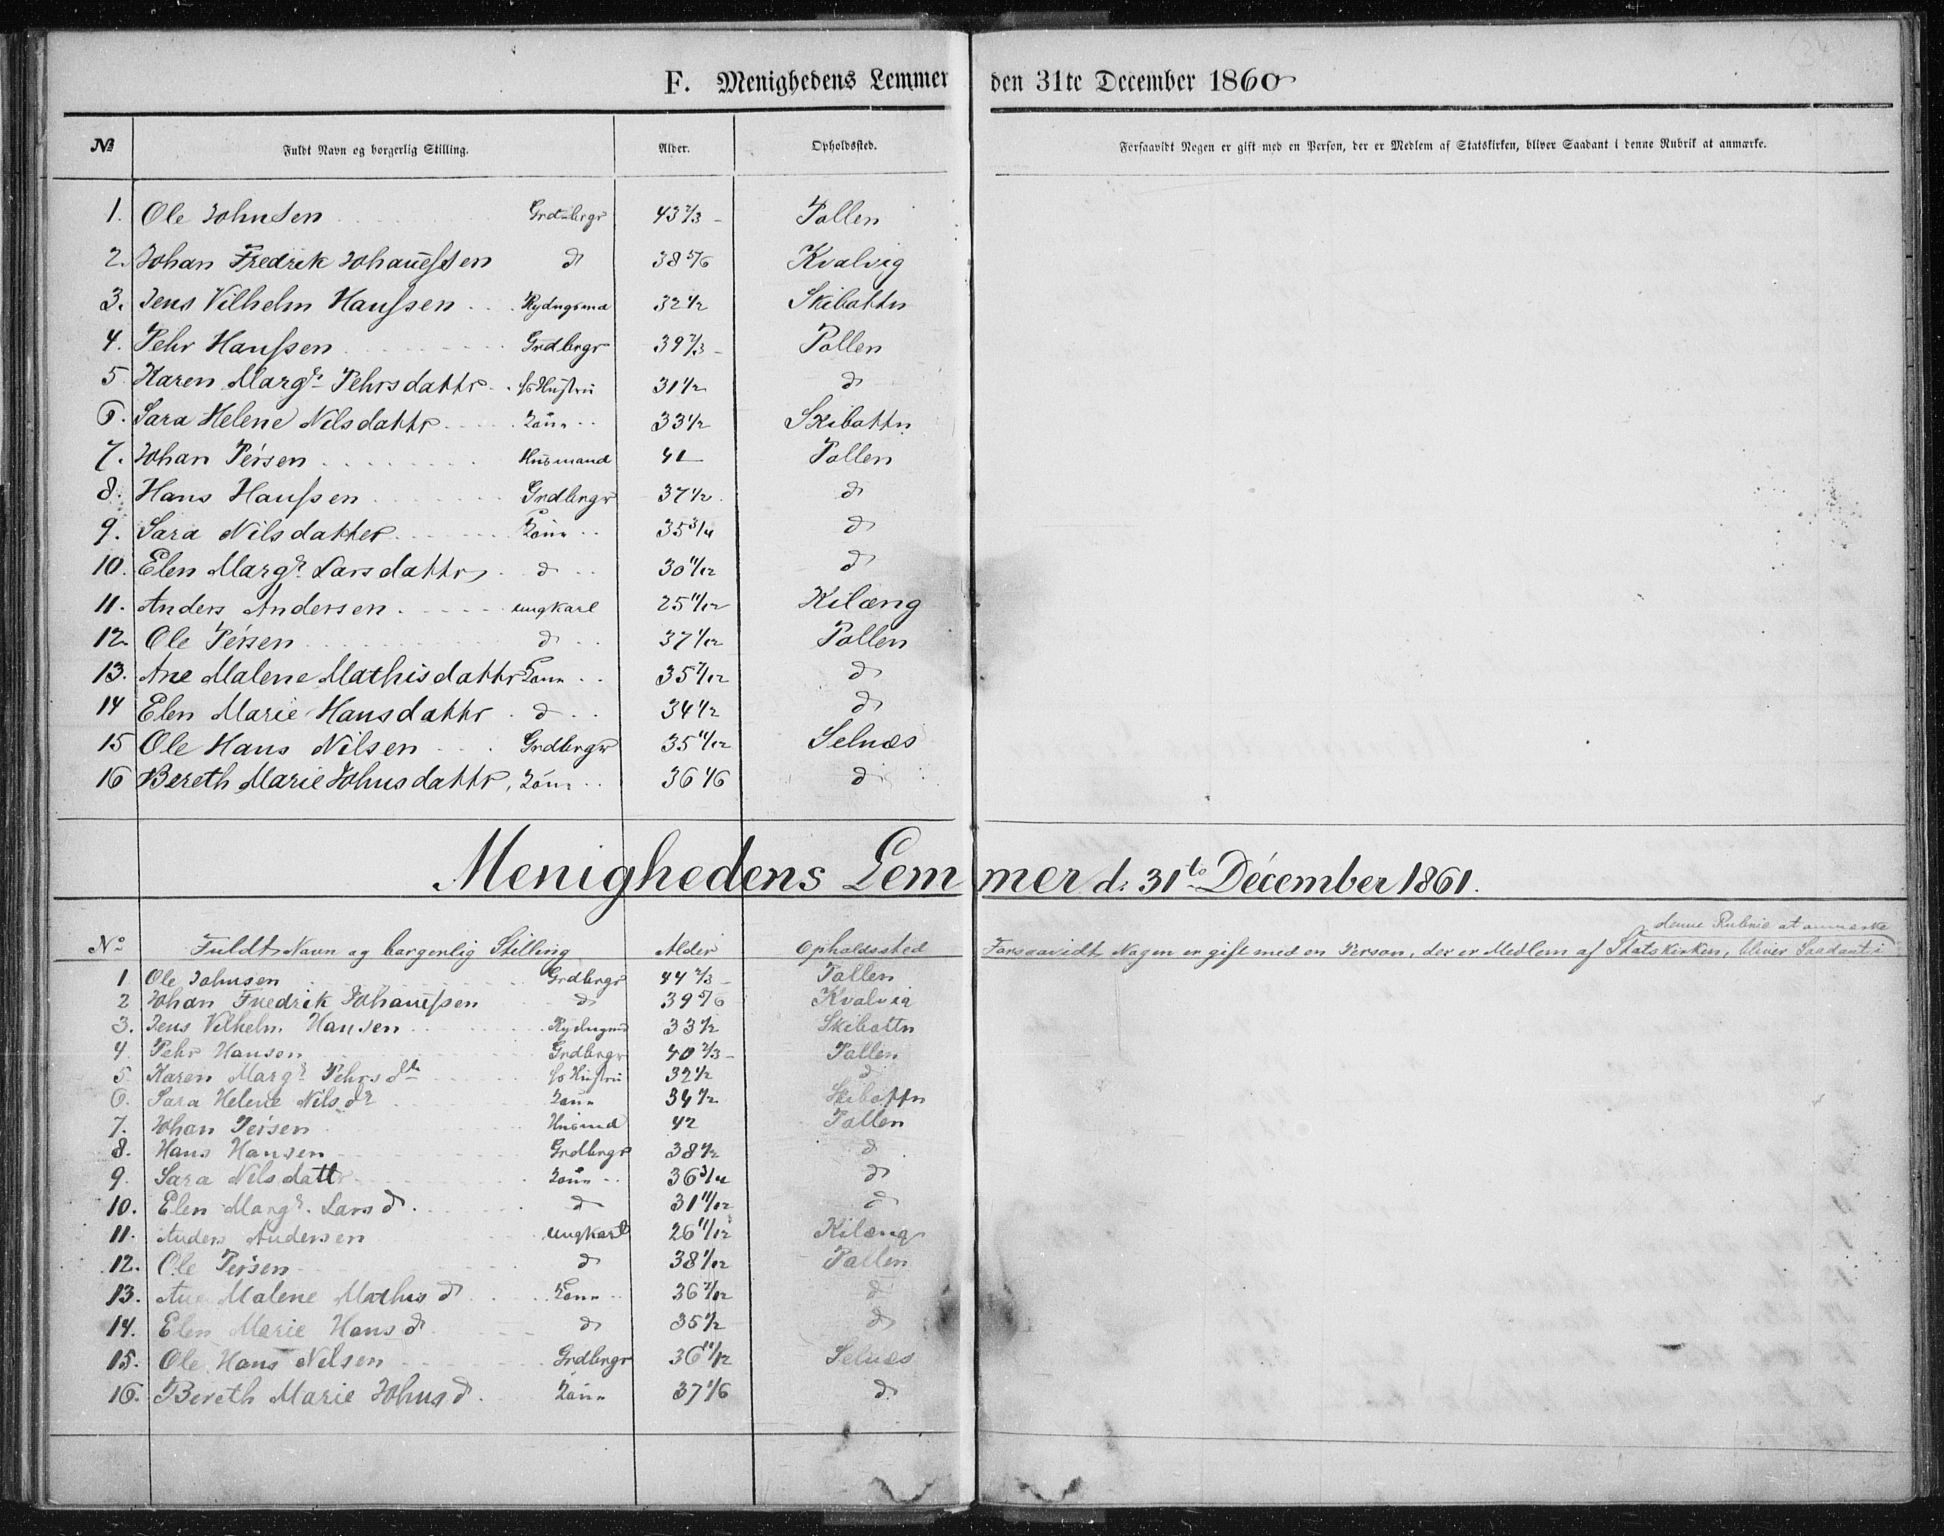 F. Menighedens Lemmer den 31te December 1860
№ Fuldt Navn og borgerlig Stilling. Alder. Opholdssted. Forsaavidt Nogen er gift med en Person, der er Medlem af Statskirken, bliver Saadant i denne Rubrik at anmærke.
1. Ole Johnsen Grdbrgr 43 2/3 Pollen
2. Johan Fredrik Johanesſen d 38 5/6 Kvalvig
3. Jens Vilhelm Hanſsen Rydngsmd 32 1/2 Skibottn
4. Pehr Hanſsen Grdbrgr 39 2/3 Pollen
5 Karen Margr Pehrsdattr s Hustru 31 1/2 d
6. Sara Helene Nilsdattr 33 1/2 Skibottn
7. Johan Peirsen Husmand 41 Pollen
8. Hans Hanſsen Grdbrgr 37 1/2 d
9. Sara Nilsdatter 35 3/4 d
10. Elen Margr Larsdattr d 30 11/12 d
11. Anders Andersen ungkarl 25 11/12 Kilæng
12. Ole Peirsen d 37 1/12 Pollen
13. Ane Malene Mathisdattr 35 7/12 d
14 Elen Marie Hansdattr d 34 1/2 d
15 Ole Hans Nilsen Grdbrgr 35 11/12 Selnæs
16 Bereth Marie Johnsdattr 36 1/6 d
Menighedens Lemmer d: 31te December 1861.
denne Rubrik at anmærke
No Fuldt Navn og borgerlig Stilling Alder Opholdssted Forsaavidt Nogen er gift med en Person, der er Medlem af Statskirken, bliver Saadant i
1 Ole Johnsen Grdbrgr 44 2/3 Pollen
2 Johan Fredrik Johanesſen d 39 5/6 Kvalvig
3. Jens Vilhelm Hansen Rydngmd 33 1/2 Skibottn
4 Pehr Hansen Grdbrgr 40 2/3 Pollen
5 Karen Margr Pehrsdtr s Hustru 32 1/2 d
6. Sara Helene Nilsdr 34 1/2 Skibottn
7. Johan Peirsen Husmd 42 Pollen
8. Hans Hansen Grdbrgr 38 1/2 d
9. Sara Nilsdattr 36 3/4 d
10. Elen Margr. Larsd d 31 11/12 d
11. Anders Andersen ungkarl 26 11/12 Kilæng
12. Ole Peirsen d 38 1/12 Pollen
13. Ane Malene Mathisd 36 7/12 d
14. Elen Marie Hansd d 35 1/2 d
15. Ole Hans Nilsen Grdbrgr 36 11/12 Selnæs
16. Bereth Marie Johnsd 37 1/6 d